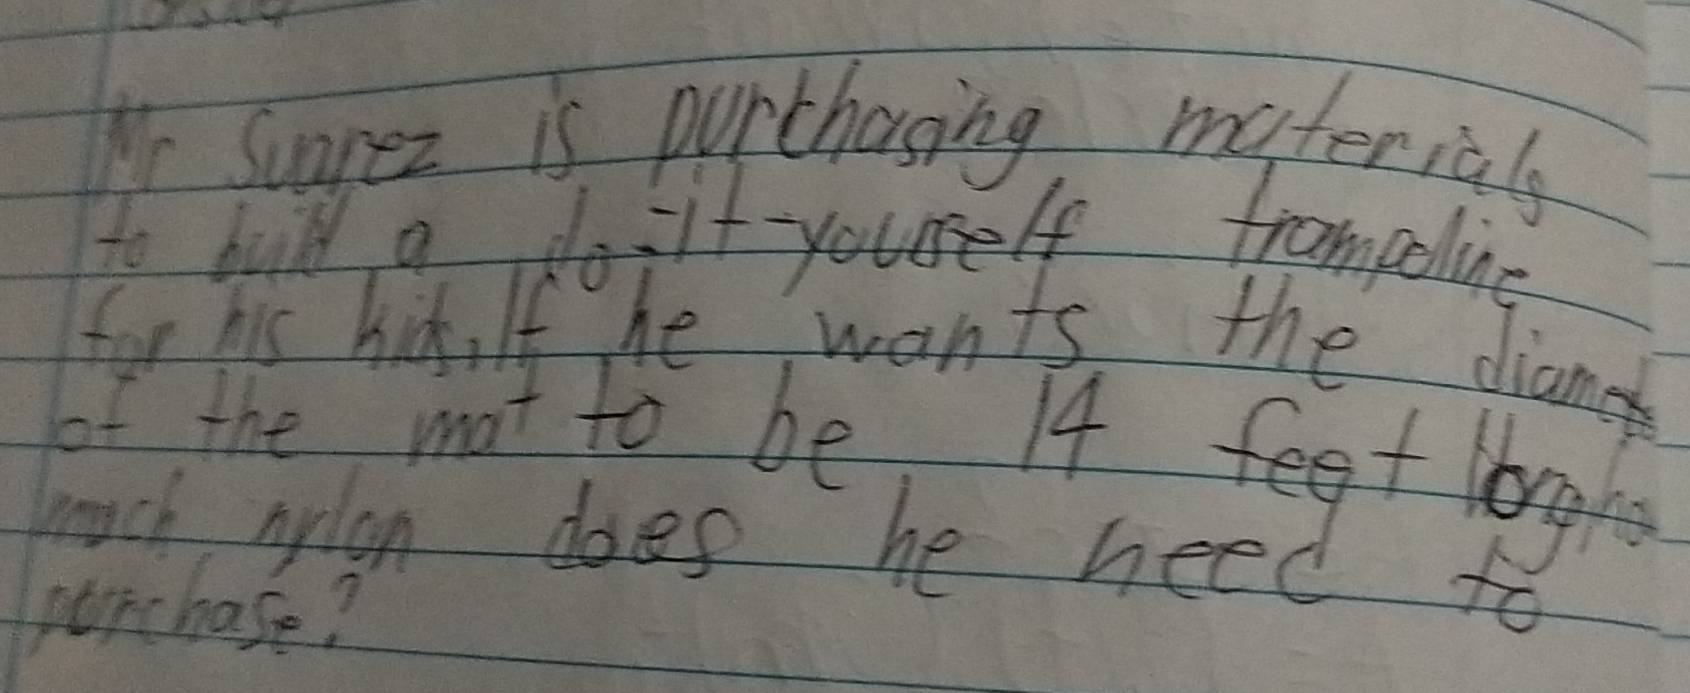 Mr Suarez is purchasing materials
to build a do-it-youself trampoline
for his kids, If he wants the diamet
of the mat to be 14 feet long, ho
much nylon does he need to
purchase?